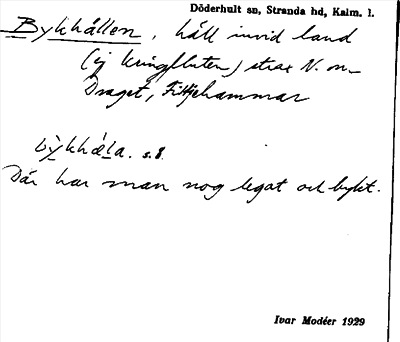 Döderhult sn, Stranda hd, Kalm. l.
Bykhällen, häll invid land
(ej kringfluten) strax N. om
Draget, Fittjehammar
by̆khæ̀la. s. f.
Där har man nog legat och bykt.
Ivar Modéer 1929